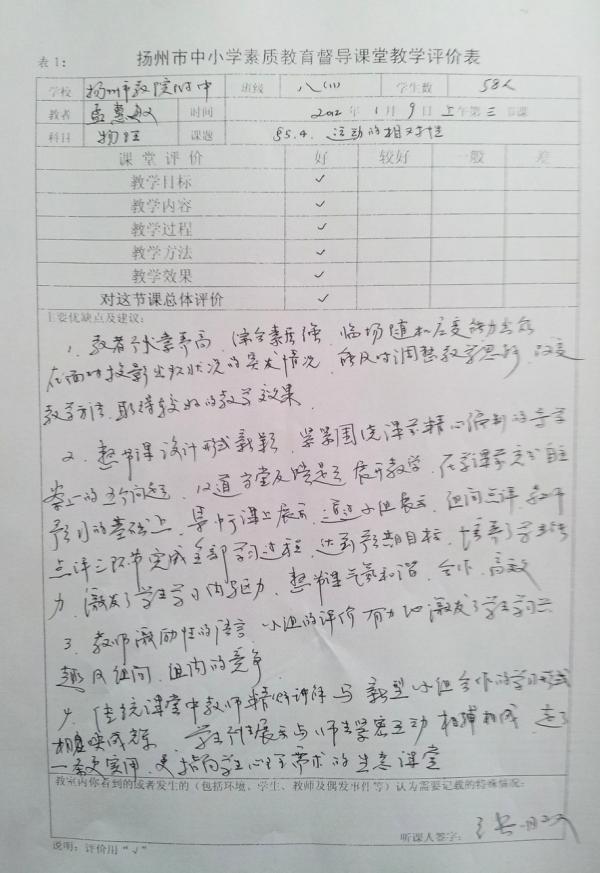 表1： 扬州市中小学素质教育督导课堂教学评价表
学校 扬州市教院附中 班级 八(1) 学生数 58人
教者 孟惠 时间 2012年1月9日上午第三节课
科目 物理 课题 §5.4. 运动的相对性
课堂评价 好 较好 一般 差
教学目标 ✓
教学内容 ✓
教学过程 ✓
教学方法 ✓
教学效果 ✓
对这节课总体评价 ✓
主要优缺点及建议：
1. 教者 素养高，综合素质强，临场随机应变能力
在面对投影出现状况的突发情况，能及时调整教学思路，改变
教学方法，取得较好的教学效果。
2. 整节课设计形式新颖，紧紧围绕课前精心编制的导学
案上的五个问题，12道 展开教学，在课前充分自主
预习的基础上，集中于课上展示，通过小组展示，组间点评，教师
点评三环节完成全部学习过程，达到预期目标，培养了学生能
力，激发了学生学习内驱力，整节课气氛和谐、合作、高效
3. 教师激励性的语言，小组的评价有力地激发了学生学习兴
趣及组间、组内的竞争
4. 传统课堂中教师精心讲解与新型小组合作的学习形式
相互映成辉，学生 展示与师生紧密互动相辅相成，走了
一条更实用，更指向学生心理需求的生态课堂
教室内你看到的或者发生的（包括环境、学生、教师及偶发事件等）认为需要记载的特殊情况：
听课人签字：
说明：评价用“✓”